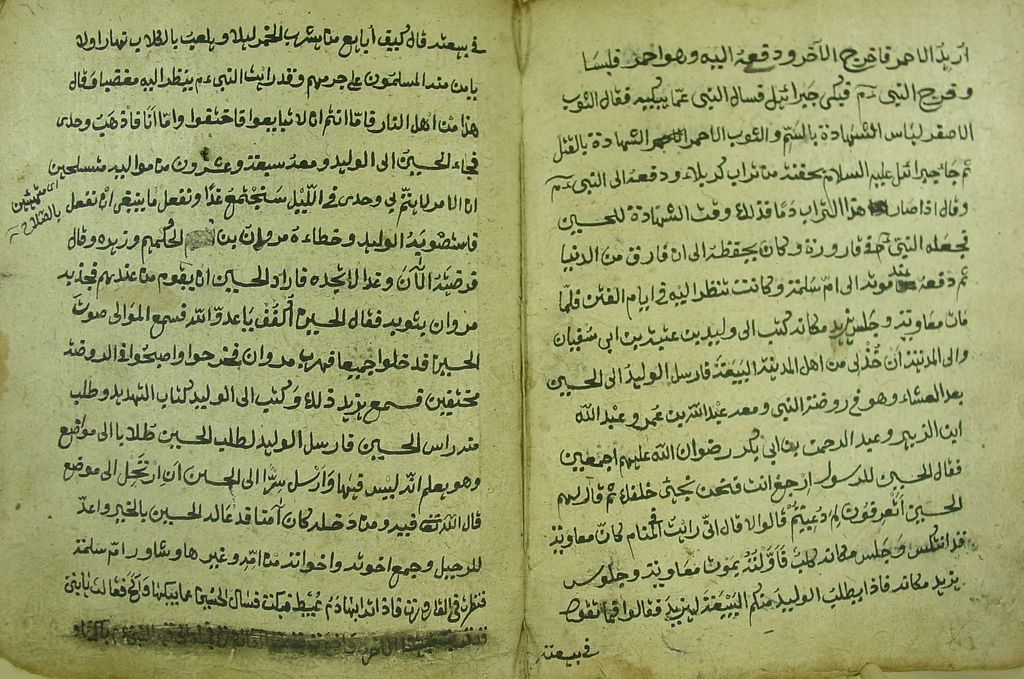 اريد الاحمر فاخرج الآخر ودفعه اليه وهو احمر فلبسا
وفرح النبى ءم فبكى جبرائيل فسال النبى عما يبكيه فقال الثوب
الاصفر لباس الشهادة بالسم والثوب الاحمر الشهادة بالقتل
ثم جاء جبرائيل عليه السلام بحفنة من تراب كربلاء ودفعه الى النبى ءم
وقال اذا صار هذا التراب دما فذلك وقت الشهادة للحسين
فجعله النبى ءم فى قارورة وكان يحفظه الى ان فارق من الدنيا
ثم دفعه عند موته الى ام سلمة وكانت تنظر اليه فى ايام الفتن فلما
مات معاوية وجلس يزيد مكانه كتب الى وليد بن عتبة بن ابى سفيان
والى المدينة ان خذ لى من اهل المدينة البيعة فارسل الوليد الى الحسين
بعد العشاء وهو فى روضة النبى ومعه عبد الله بن عمر وعبد الله
ابن الزبير وعبد الرحمن بن ابى بكر رضوان الله عليهم اجمعين
فقال الحسين للرسول ارجع انت فنحن نجئ خلفك ثم قال لهم
الحسين أتعرفون لم دعيتم قالوا لا قال انى رايت فى المنام كان معاوية
قد انتكس وجلس مكانه كلب فاولته بموت معاوية وجلوس
يزيد مكانه فاذا يطلب الوليد منكم البيعة ليزيد فقالوا فما تقول
فى بيعته
فى بيعته قال كيف أبايع من يشرب الخمر ليلا ويلعب بالكلاب نهارا ولا
يامن منه المسلمون على حرمهم وقد رايت النبى ءم ينظر اليه مغضبا وقال
هذا من اهل النار فاما انتم ان لا تبايعوا فاختفوا واما انا فاذهب وحدى
فجاء الحسين الى الوليد ومعه سبعة وعشرون من مواليه متسلحين
اى متهيئين
بالسلاح
ان الامر لا يتم بى وحدى فى الليل سنجتمع غدا ونفعل ما ينبغى ان نفعل
فاستصوبه الوليد وخطاءه مروان بن الحكم وزبره وقال
فرضته الآن وغدا لا تجده فاراد الحسين ان يقوم من عندهم فجذبه
مروان بثوبه فقال الحسين اكفف يا عدو الله فسمع الموالى صوت
الحسين فدخلوا جميعا فهرب مروان فخرحوا واصبحوا فى الروضة
مختفين فسمع يزيد ذلك وكتب الى الوليد كتاب التهديد وطلب
منه راس الحسين فارسل الوليد لطلب الحسين طلابا الى مواضع
وهو يعلم انه ليس فيها وارسل سرا الى الحسين ان ارتحل الى موضع
قال الله فيه ومن دخله كان آمنا فدعا له الحسين بالخير واعد
للرحيل وجمع اخوته واخواته من امه وغيرها وشاور ام سلمة
فنظرت فى القارورة فاذا ترابها دم عبيط فبكت فسال الحسين عما يبكيها فقالت يا بنى